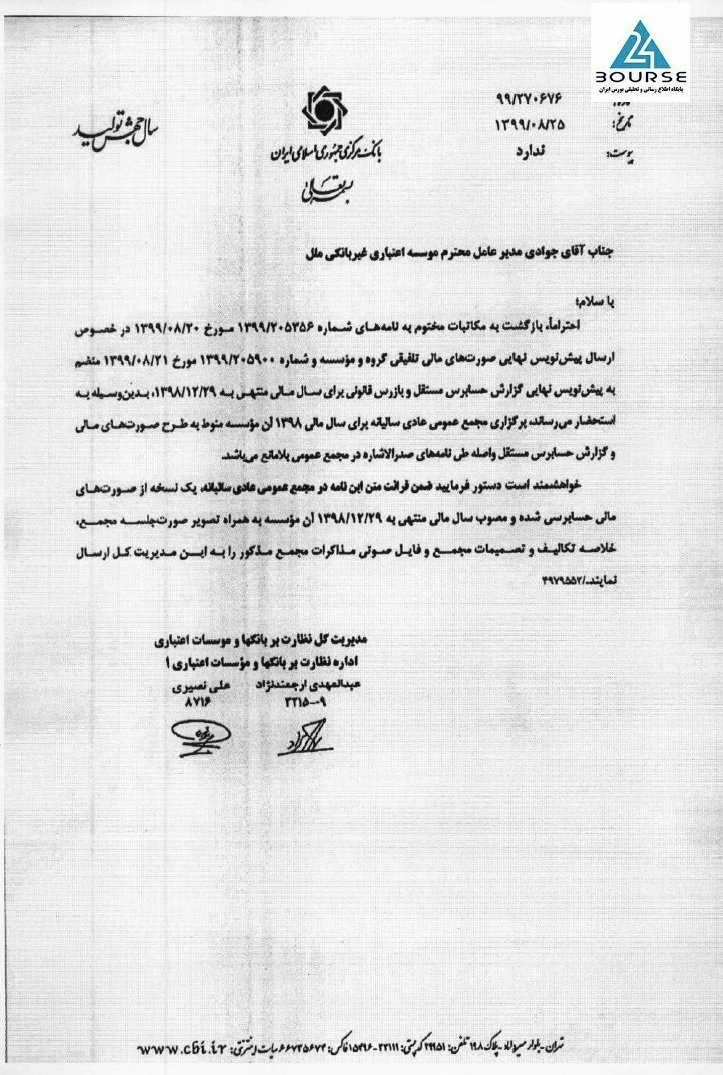 24
BOURSE
پایگاه اطلاع رسانی و تحلیلی بورس ایران
۹۹/۲۷۰۶۷۶
تاریخ: ۱۳۹۹/۰۸/۲۵
پیوست: ندارد
بانک مرکزی جمهوری اسلامی ایران
بسمه تعالی
سال جهش تولید
جناب آقای جوادی مدیر عامل محترم موسسه اعتباری غیربانکی ملل
با سلام؛
احتراماً، بازگشت به مکاتبات مختوم به نامه‌های شماره ۱۳۹۹/۲۰۵۳۵۶ مورخ ۱۳۹۹/۰۸/۲۰ در خصوص
ارسال پیش‌نویس نهایی صورت‌های مالی تلفیقی گروه و مؤسسه و شماره ۱۳۹۹/۲۰۵۹۰۰ مورخ ۱۳۹۹/۰۸/۲۱ منضم
به پیش‌نویس نهایی گزارش حسابرس مستقل و بازرس قانونی برای سال مالی منتهی به ۱۳۹۸/۱۲/۲۹، بدین‌وسیله به
استحضار می‌رساند، برگزاری مجمع عمومی عادی سالیانه برای سال مالی ۱۳۹۸ آن مؤسسه منوط به طرح صورت‌های مالی
و گزارش حسابرس مستقل واصله طی نامه‌های صدرالاشاره در مجمع عمومی بلامانع می‌باشد.
خواهشمند است دستور فرمایید ضمن قرائت متن این نامه در مجمع عمومی عادی سالیانه، یک نسخه از صورت‌های
مالی حسابرسی شده و مصوب سال مالی منتهی به ۱۳۹۸/۱۲/۲۹ آن مؤسسه به همراه تصویر صورت‌جلسه مجمع،
خلاصه تکالیف و تصمیمات مجمع و فایل صوتی مذاکرات مجمع مذکور را به این مدیریت کل ارسال
نمایند./۴۹۷۹۵۵۲
مدیریت کل نظارت بر بانکها و موسسات اعتباری
اداره نظارت بر بانکها و مؤسسات اعتباری ۱
عبدالمهدی ارجمندنژاد علی نصیری
۳۲۱۵-۰۹ ۸۷۱۶
تهران-بلوار میرداماد-پلاک ۱۹۸ تلفن: ۲۹۹۵۱ کدپستی: ۳۳۱۱۱-۱۵۴۹۶ فاکس: ۶۶۷۳۵۶۷۴ سایت اینترنتی: www.cbi.ir